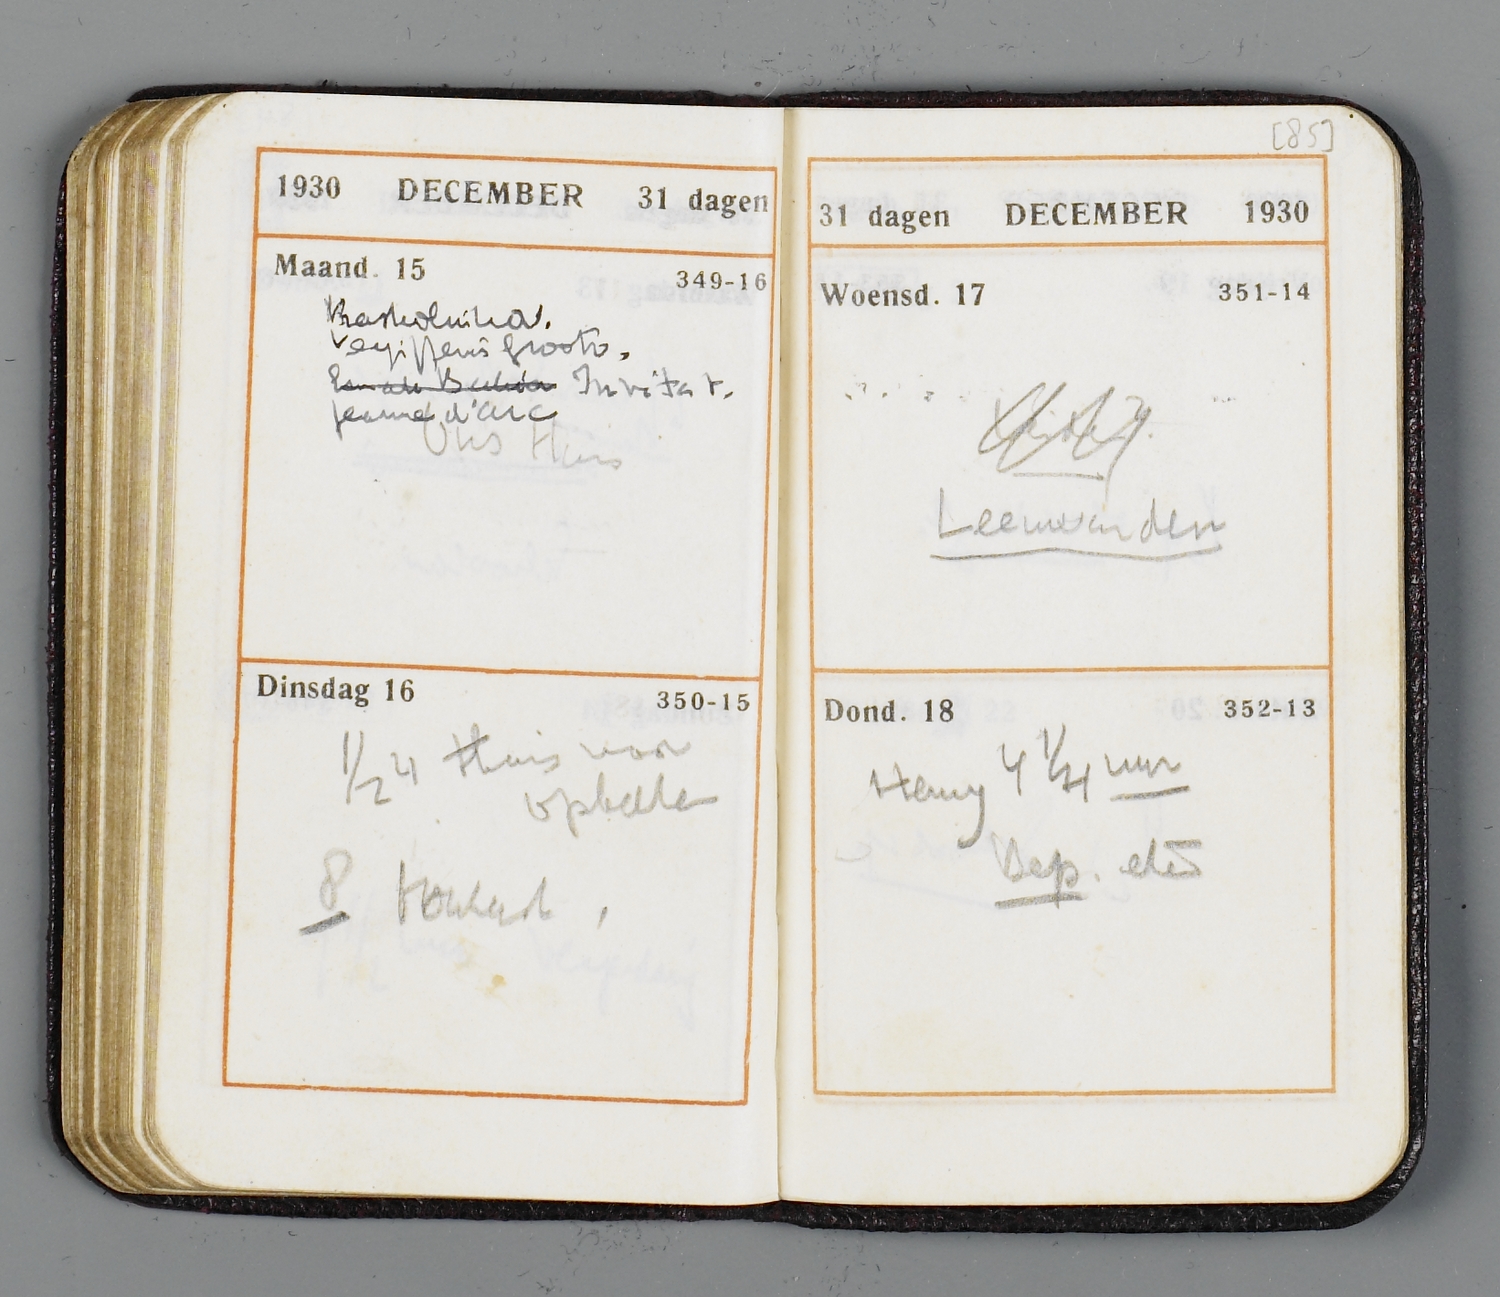 1930 DECEMBER 31 dagen
Maand. 15 349-16
Grooto.
Invitat.
jeanne d'arc
Ons Huis
Dinsdag 16 350-15
1/2 4 Huis voor
opbellen
8
[85]
31 dagen DECEMBER 1930
Woensd. 17 351-14
Leeuwarden
Dond. 18 352-13
Henny 4 1/4 uur
Bep. eten